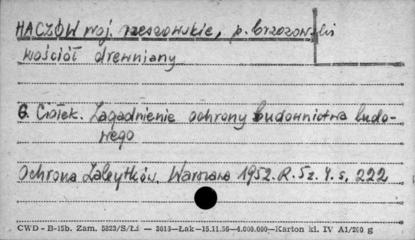 HACZÓW woj. rzeszowskie, p. brzozowski
kościół drewniany
G. Ciołek. Zagadnienie ochrony budownictwa ludo-
wego
Ochrona Zabytków. Warszawa 1952. R. 5 z. 4. s. 222
CWD - B-15b. Zam. 5823/S/Łi — 3013—Łak—15.11.56—4.000.000—Karton kl. IV A1/200 g